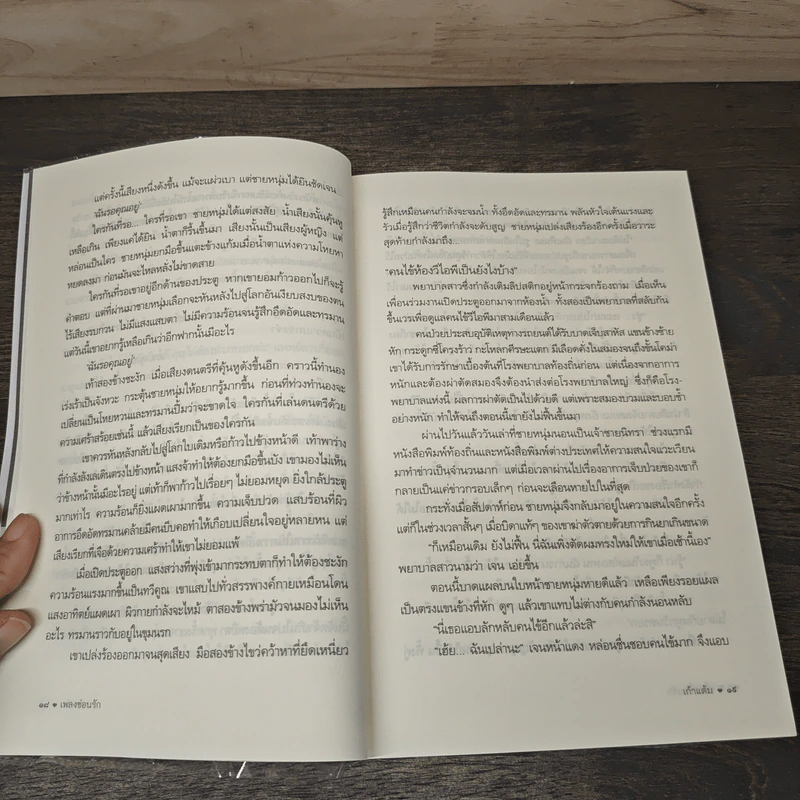 แต่ครั้งนี้เสียงหนึ่งดังขึ้น แม้จะแผ่วเบา แต่ชายหนุ่มได้ยินชัดเจน
'ฉันรอคุณอยู่'
ใครกันที่รอ... ใครที่รอเขา ชายหนุ่มได้แต่สงสัย น้ำเสียงนั้นคุ้นหู
เหลือเกิน เพียงแค่ได้ยิน น้ำตาก็รื้นขึ้นมา เสียงนั้นเป็นเสียงผู้หญิง แต่
หล่อนเป็นใคร ชายหนุ่มยกมือขึ้นแตะข้างแก้มเมื่อน้ำตาแห่งความโหยหา
หยดลงมา ก่อนมันจะไหลหลั่งไม่ขาดสาย
ใครกันที่รอเขาอยู่อีกด้านของประตู หากเขายอมก้าวออกไปก็จะรู้
คำตอบ แต่ที่ผ่านมาชายหนุ่มเลือกจะหันหลังไปสู่โลกอันเงียบสงบของตน
ไร้เสียงรบกวน ไม่มีแสงแสบตา ไม่มีความร้อนจนรู้สึกอึดอัดและทรมาน
แต่วันนี้เขาอยากรู้เหลือเกินว่าอีกฟากนั้นมีอะไร
'ฉันรอคุณอยู่'
เท้าสองข้างชะงัก เมื่อเสียงดนตรีที่คุ้นหูดังขึ้นอีก คราวนี้ทำนอง
เร่งเร้าเป็นจังหวะ กระตุ้นชายหนุ่มให้อยากรู้มากขึ้น ก่อนที่ท่วงทำนองจะ
เปลี่ยนเป็นโหยหวนและทรมานปิ้มว่าจะขาดใจ ใครกันที่เล่นดนตรีด้วย
ความเศร้าสร้อยเช่นนี้ แล้วเสียงเรียกเป็นของใครกัน
เขาควรหันหลังกลับไปสู่โลกใบเดิมหรือก้าวไปข้างหน้าดี เท้าพาร่าง
ที่กำลังลังเลเดินตรงไปข้างหน้า แสงจ้าทำให้ต้องยกมือขึ้นบัง เขามองไม่เห็น
ว่าข้างหน้านั้นมีอะไรอยู่ แต่เท้าก็พาก้าวไปเรื่อยๆ ไม่ยอมหยุด ยิ่งใกล้ประตู
มากเท่าไร ความร้อนก็ยิ่งแผดเผามากขึ้น ความเจ็บปวด แสบร้อนที่ผิว
อาการอึดอัดทรมานคล้ายมีคนบีบคอทำให้เกือบเปลี่ยนใจอยู่หลายหน แต่
เสียงเรียกที่เจือด้วยความเศร้าทำให้เขาไม่ยอมแพ้
เมื่อเปิดประตูออก แสงสว่างที่พุ่งเข้ามากระทบตาก็ทำให้ต้องชะงัก
ความร้อนแรงมากขึ้นเป็นทวีคูณ เขาแสบไปทั่วสรรพางค์กายเหมือนโดน
แสงอาทิตย์แผดเผา ผิวกายกำลังจะไหม้ ตาสองข้างพร่ามัวจนมองไม่เห็น
อะไร ทรมานราวกับอยู่ในขุมนรก
เขาเปล่งร้องออกมาจนสุดเสียง มือสองข้างไขว่คว้าหาที่ยึดเหนี่ยว
๑๘ • เพลงซ่อนรัก
รู้สึกเหมือนคนกำลังจะจมน้ำ ทั้งอึดอัดและทรมาน พลันหัวใจเต้นแรงและ
รัวเมื่อรู้สึกว่าชีวิตกำลังจะดับสูญ ชายหนุ่มเปล่งเสียงร้องอีกครั้งเมื่อวาระ
สุดท้ายกำลังมาถึง...
"คนไข้ห้องวีไอพีเป็นยังไงบ้าง"
พยาบาลสาวซึ่งกำลังเติมลิปสติกอยู่หน้ากระจกร้องถาม เมื่อเห็น
เพื่อนร่วมงานเปิดประตูออกมาจากห้องน้ำ ทั้งสองเป็นพยาบาลที่สลับกัน
ขึ้นเวรเพื่อดูแลคนไข้วีไอพีมาสามเดือนแล้ว
คนป่วยประสบอุบัติเหตุทางรถยนต์ได้รับบาดเจ็บสาหัส แขนข้างซ้าย
หัก กระดูกซี่โครงร้าว กะโหลกศีรษะแตก มีเลือดคั่งในสมองจนถึงขั้นโคม่า
เขาได้รับการรักษาเบื้องต้นที่โรงพยาบาลท้องถิ่นก่อน แต่เนื่องจากอาการ
หนักและต้องผ่าตัดสมองจึงต้องนำส่งต่อโรงพยาบาลใหญ่ ซึ่งก็คือโรง-
พยาบาลแห่งนี้ ผลการผ่าตัดเป็นไปด้วยดี แต่เพราะสมองบวมและบอบช้ำ
อย่างหนัก ทำให้จนถึงตอนนี้เขายังไม่ฟื้นขึ้นมา
ผ่านไปวันแล้ววันเล่าที่ชายหนุ่มนอนเป็นเจ้าชายนิทรา ช่วงแรกมี
หนังสือพิมพ์ท้องถิ่นและหนังสือพิมพ์ต่างประเทศให้ความสนใจแวะเวียน
มาทำข่าวเป็นจำนวนมาก แต่เมื่อเวลาผ่านไปเรื่องอาการเจ็บป่วยของเขาก็
กลายเป็นแค่ข่าวกรอบเล็กๆ ก่อนจะเลือนหายไปในที่สุด
กระทั่งเมื่อสัปดาห์ก่อน ชายหนุ่มจึงกลับมาอยู่ในความสนใจอีกครั้ง
แต่ก็ในช่วงเวลาสั้นๆ เมื่อบิดาแท้ๆ ของเขาฆ่าตัวตายด้วยการกินยาเกินขนาด
"ก็เหมือนเดิม ยังไม่ฟื้น นี่ฉันเพิ่งตัดผมทรงใหม่ให้เขาเมื่อเช้านี้เอง"
พยาบาลสาวนามว่า เจน เอ่ยขึ้น
ตอนนี้บาดแผลบนใบหน้าชายหนุ่มหายดีแล้ว เหลือเพียงรอยแผล
เป็นตรงแขนข้างที่หัก ดูๆ แล้วเขาแทบไม่ต่างกับคนกำลังนอนหลับ
"นี่เธอแอบลักหลับคนไข้อีกแล้วล่ะสิ"
"เฮ้ย... ฉันเปล่านะ" เจนหน้าแดง หล่อนชื่นชอบคนไข้มาก จึงแอบ
เก้าแต้ม • ๑๙